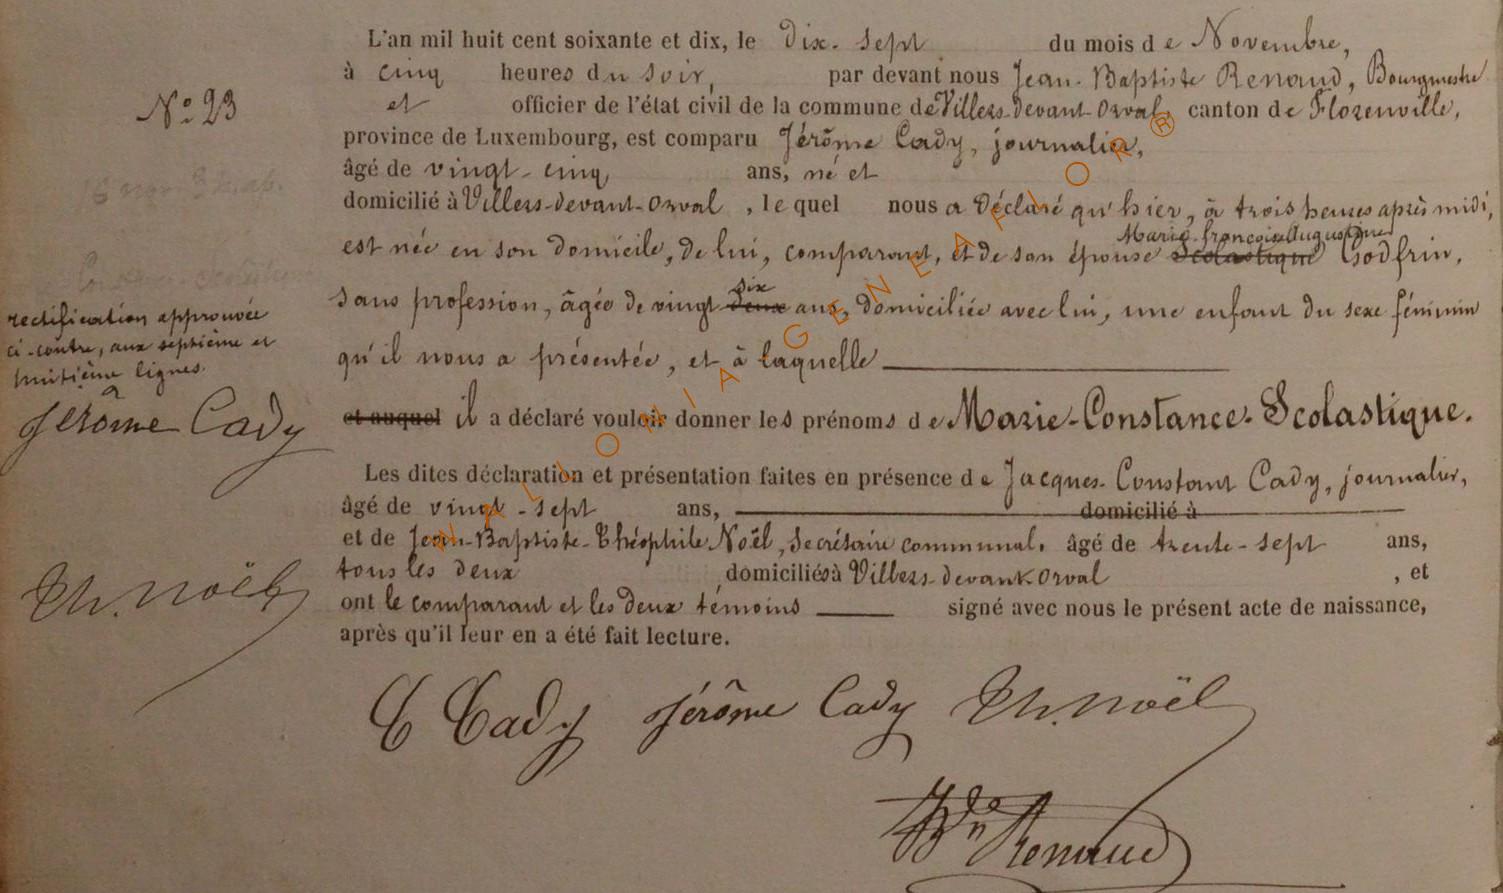 L'an mil huit cent soixante et dix, le dix-sept du mois de Novembre,
à cinq heures du soir, par devant nous Jean-Baptiste Renaud, Bourgmestre
N° 23
et officier de l'état civil de la commune de Villers-devant-Orval, canton de Florenville,
province de Luxembourg, est comparu Jérôme Cady, journalier,
âgé de vingt-cinq ans, né et
domicilié à Villers-devant-Orval, lequel nous a déclaré qu'hier, à trois heures après midi,
Marie-Françoise Augustine
est née en son domicile, de lui, comparant, et de son épouse Scolastique Godfrin,
six
sans profession, âgée de vingt deux ans, domiciliée avec lui, une enfant du sexe féminin
qu'il nous a présentée, et à laquelle
rectification approuvée
ci-contre, aux septième et
huitième lignes.
Jérôme Cady
et auquel il a déclaré vouloir donner les prénoms de Marie-Constance-Scolastique.
Les dites déclaration et présentation faites en présence de Jacques-Constant Cady, journalier,
âgé de vingt-sept ans, domicilié à
et de Jean-Baptiste-Théophile Noël, Secrétaire communal, âgé de trente-sept ans,
tous les deux domiciliés à Villers-devant-Orval, et
Th. Noël
ont le comparant et les deux témoins signé avec nous le présent acte de naissance,
après qu'il leur en a été fait lecture.
C Cady Jérôme Cady Th. Noël
Renaud
WALLONIA GENEAFLOR®